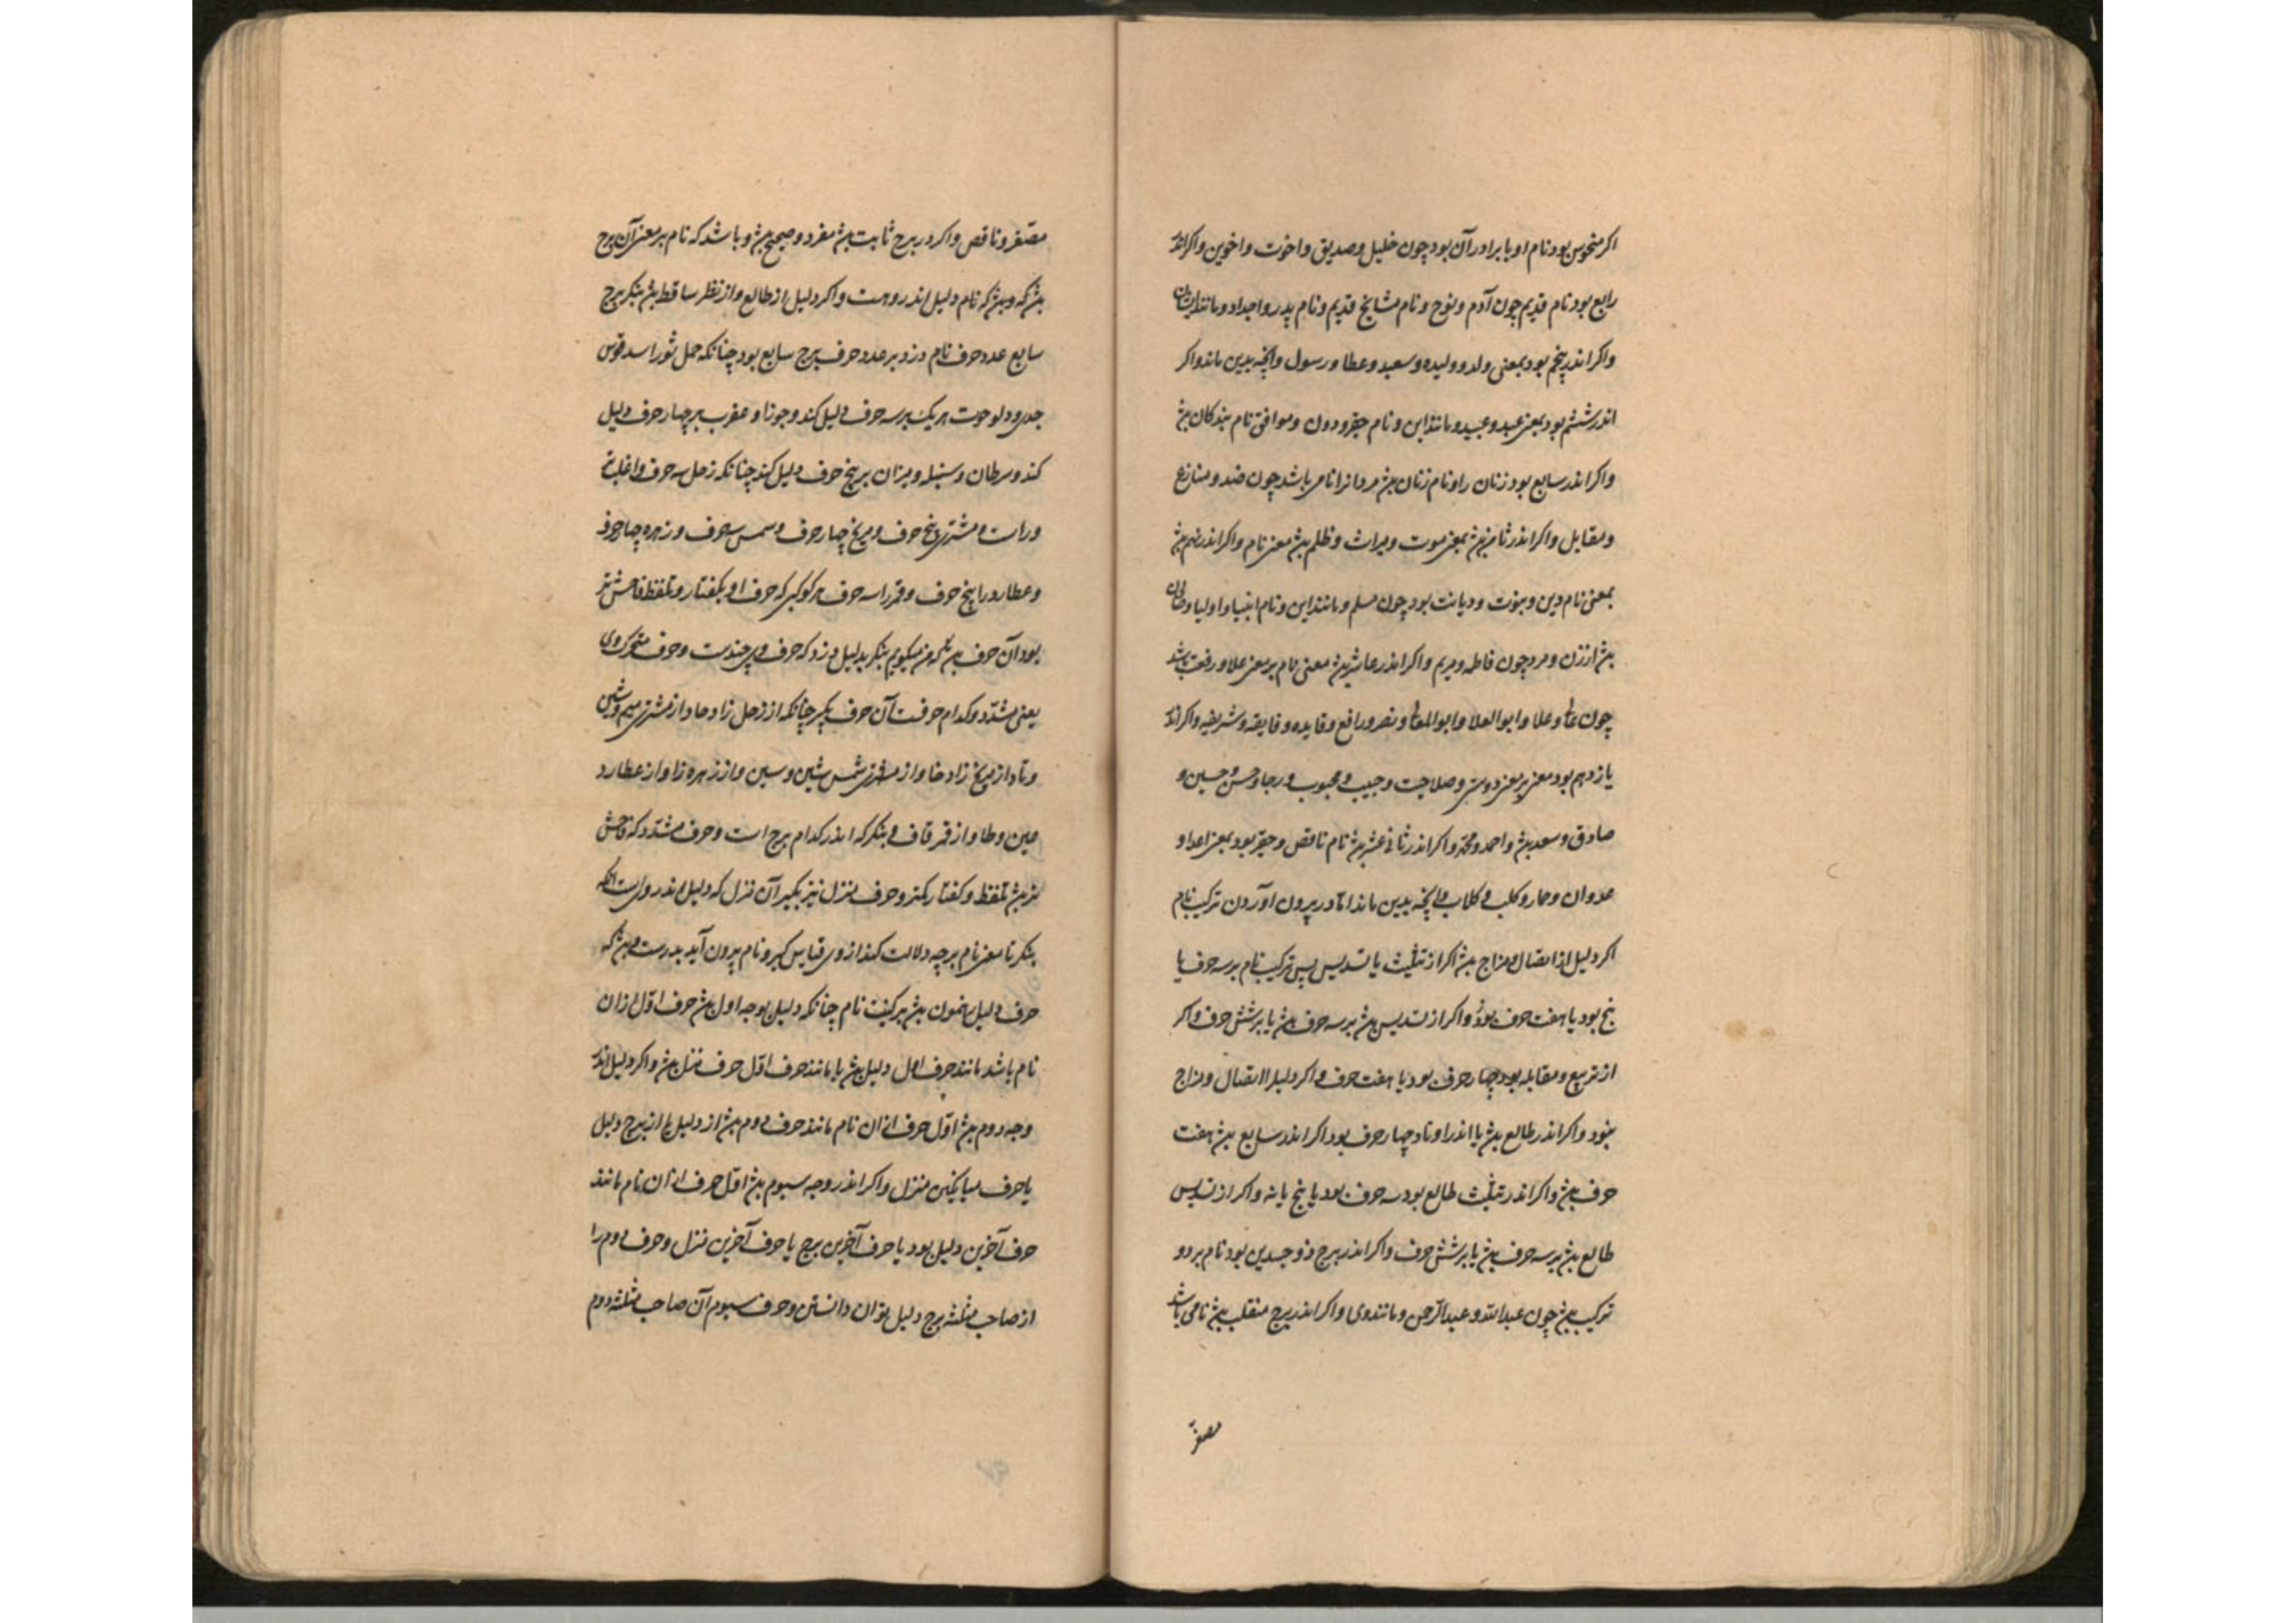 اکر منحوس بود نام او یا برادر آن بود چون خلیل و صدیق و اخوت و اخوین و اکر اندر
رابع بود نام قدیم چون آدم و نوح و نام مشایخ قدیم و نام پدر و اجداد و مانند ایشان
واکر اندر پنجم بود بمعنی ولد و ولیده و سعید و عطا و رسول وانچه بدین ماند واکر
اندر ششم بود بمعنی عبد و عبید و مانند این و نام حقیر و دون و موافق نام بندکان بش
واکر اندر سابع بود زنان را و نام زنان بش مردانرا نامی باشد چون ضد و منازع
ومقابل واکر اندر ثامن بش بمعنی موت ومیراث وظلم بش معنی نام واکر اندر نهم بش
بمعنی نام دین و نبوت و دیانت بود چون مسلم و مانند این و نام انبیا و اولیا
بش از زن و مرد چون فاطمه ومریم واکر اندر عاشر بش معنی نام بر معنی علا و رفعت باشد
چون علی وعلا وابو العلا وابو المعالی ونصر ورافع وفایده وفایقه وشریفه واکر اندر
یازدهم بود معنی بر معنی دوستی وصلاحیت وحبیب ومحبوب ورجا وحسن وحسین و
صادق وسعد بش واحمد ومحمد واکر اندر ثانی عشر بش نام ناقص وحقیر بود بمعنی اعدا و
عدوان وحمار وکلب وکلاب وانچه بدین ماند اما در بیرون آوردن ترکیب نام
اکر دلیل از اتصال ومزاج بش اکر از تثلیث یا تسدیس پس ترکیب نام بر سه حرف یا
پنج بود یا هفت حرف بود واکر از تسدیس بش بر سه حرف بش یا بر شش حرف واکر
از تربیع ومقابله بود چهار حرف بود یا هفت حرف واکر دلیل را اتصال ومزاج
نبود واکر اندر طالع بش یا اندر اوتاد چهار حرف بود اکر اندر سابع بش هفت
حرف بش واکر اندر تثلیث طالع بود سه حرف بود یا پنج یا نه واکر از تسدیس
طالع بش بر سه حرف بش یا بر شش حرف واکر اندر برج ذو جسدین بود نام بر دو
ترکیب بش چون عبدالله وعبدالرحمن ومانند وی واکر اندر برج منقلب بش نامی باشد
مصغر
مصغر وناقص واکر در برج ثابت بش مفرد وصحیح بش وباشد که نام بر معنی آن برج
بش که وبش که نام دلیل اندر وست واکر دلیل از طالع واز نظر ساقط بش بنکر برج
سابع عدد حرف نام دزد بر عدد حرف برج سابع بود چنانکه حمل ثور اسد قوس
جدی ودلو حوت هر یک بر سه حرف دلیل کند وجوزا وعقرب بر چهار حرف دلیل
کند وسرطان وسنبله ومیزان بر پنج حرف دلیل کند چنانکه زحل سه حرف
وراست ومشتری پنج حرف ومریخ چهار حرف وشمس سه حرف وزهره چهار حرف
وعطارد را پنج حرف وقمر را سه حرف هر کوکبی که حرف او بکفتار وتلفظ فاحش تر
بود آن حرف میکویم بنکر بدلیل دزد که حرف وی چندست وحرف متحرک وی
یعنی مشدد وکدام حرفست آن حرف بکیر چنانکه از زحل زا وحا واز مشتری میم وشین
وتا واز مریخ زا وخا واز مشتری شمس شین وسین واز زهره زا واز عطارد
عین وطا واز قمر قاف بنکر که اندر کدام برج است وحرف مشدد که فاحش
تر بش تلفظ وکفتار بکیر وحرف منزل نیز بکیر آن منزل که دلیل اندر وی است انکه
بنکر تا معنی نام بر چه دلالت کند از وی قیاس کیر ونام بیرون آید بدرست وبش که
حرف دلیل نمون بش بر کیفیت نام چنانکه دلیل بوجه اول بش حرف اول از آن
نام باشد مانند حرف اول دلیل بش یا مانند حرف اول حرف منزل بش واکر دلیل اندر
وجه دوم بش اول حرف از آن نام مانند حرف دوم بش از دلیل یا از برج دلیل
یا حرف میانکین منزل واکر اندر وجه سیوم بش اول حرف از آن نام مانند
حرف آخرین دلیل بود یا حرف آخرین برج یا حرف آخرین منزل وحرف دوم را
از صاحب مثلثه برج دلیل توان دانستن وحرف سیوم آن صاحب مثلثه دوم